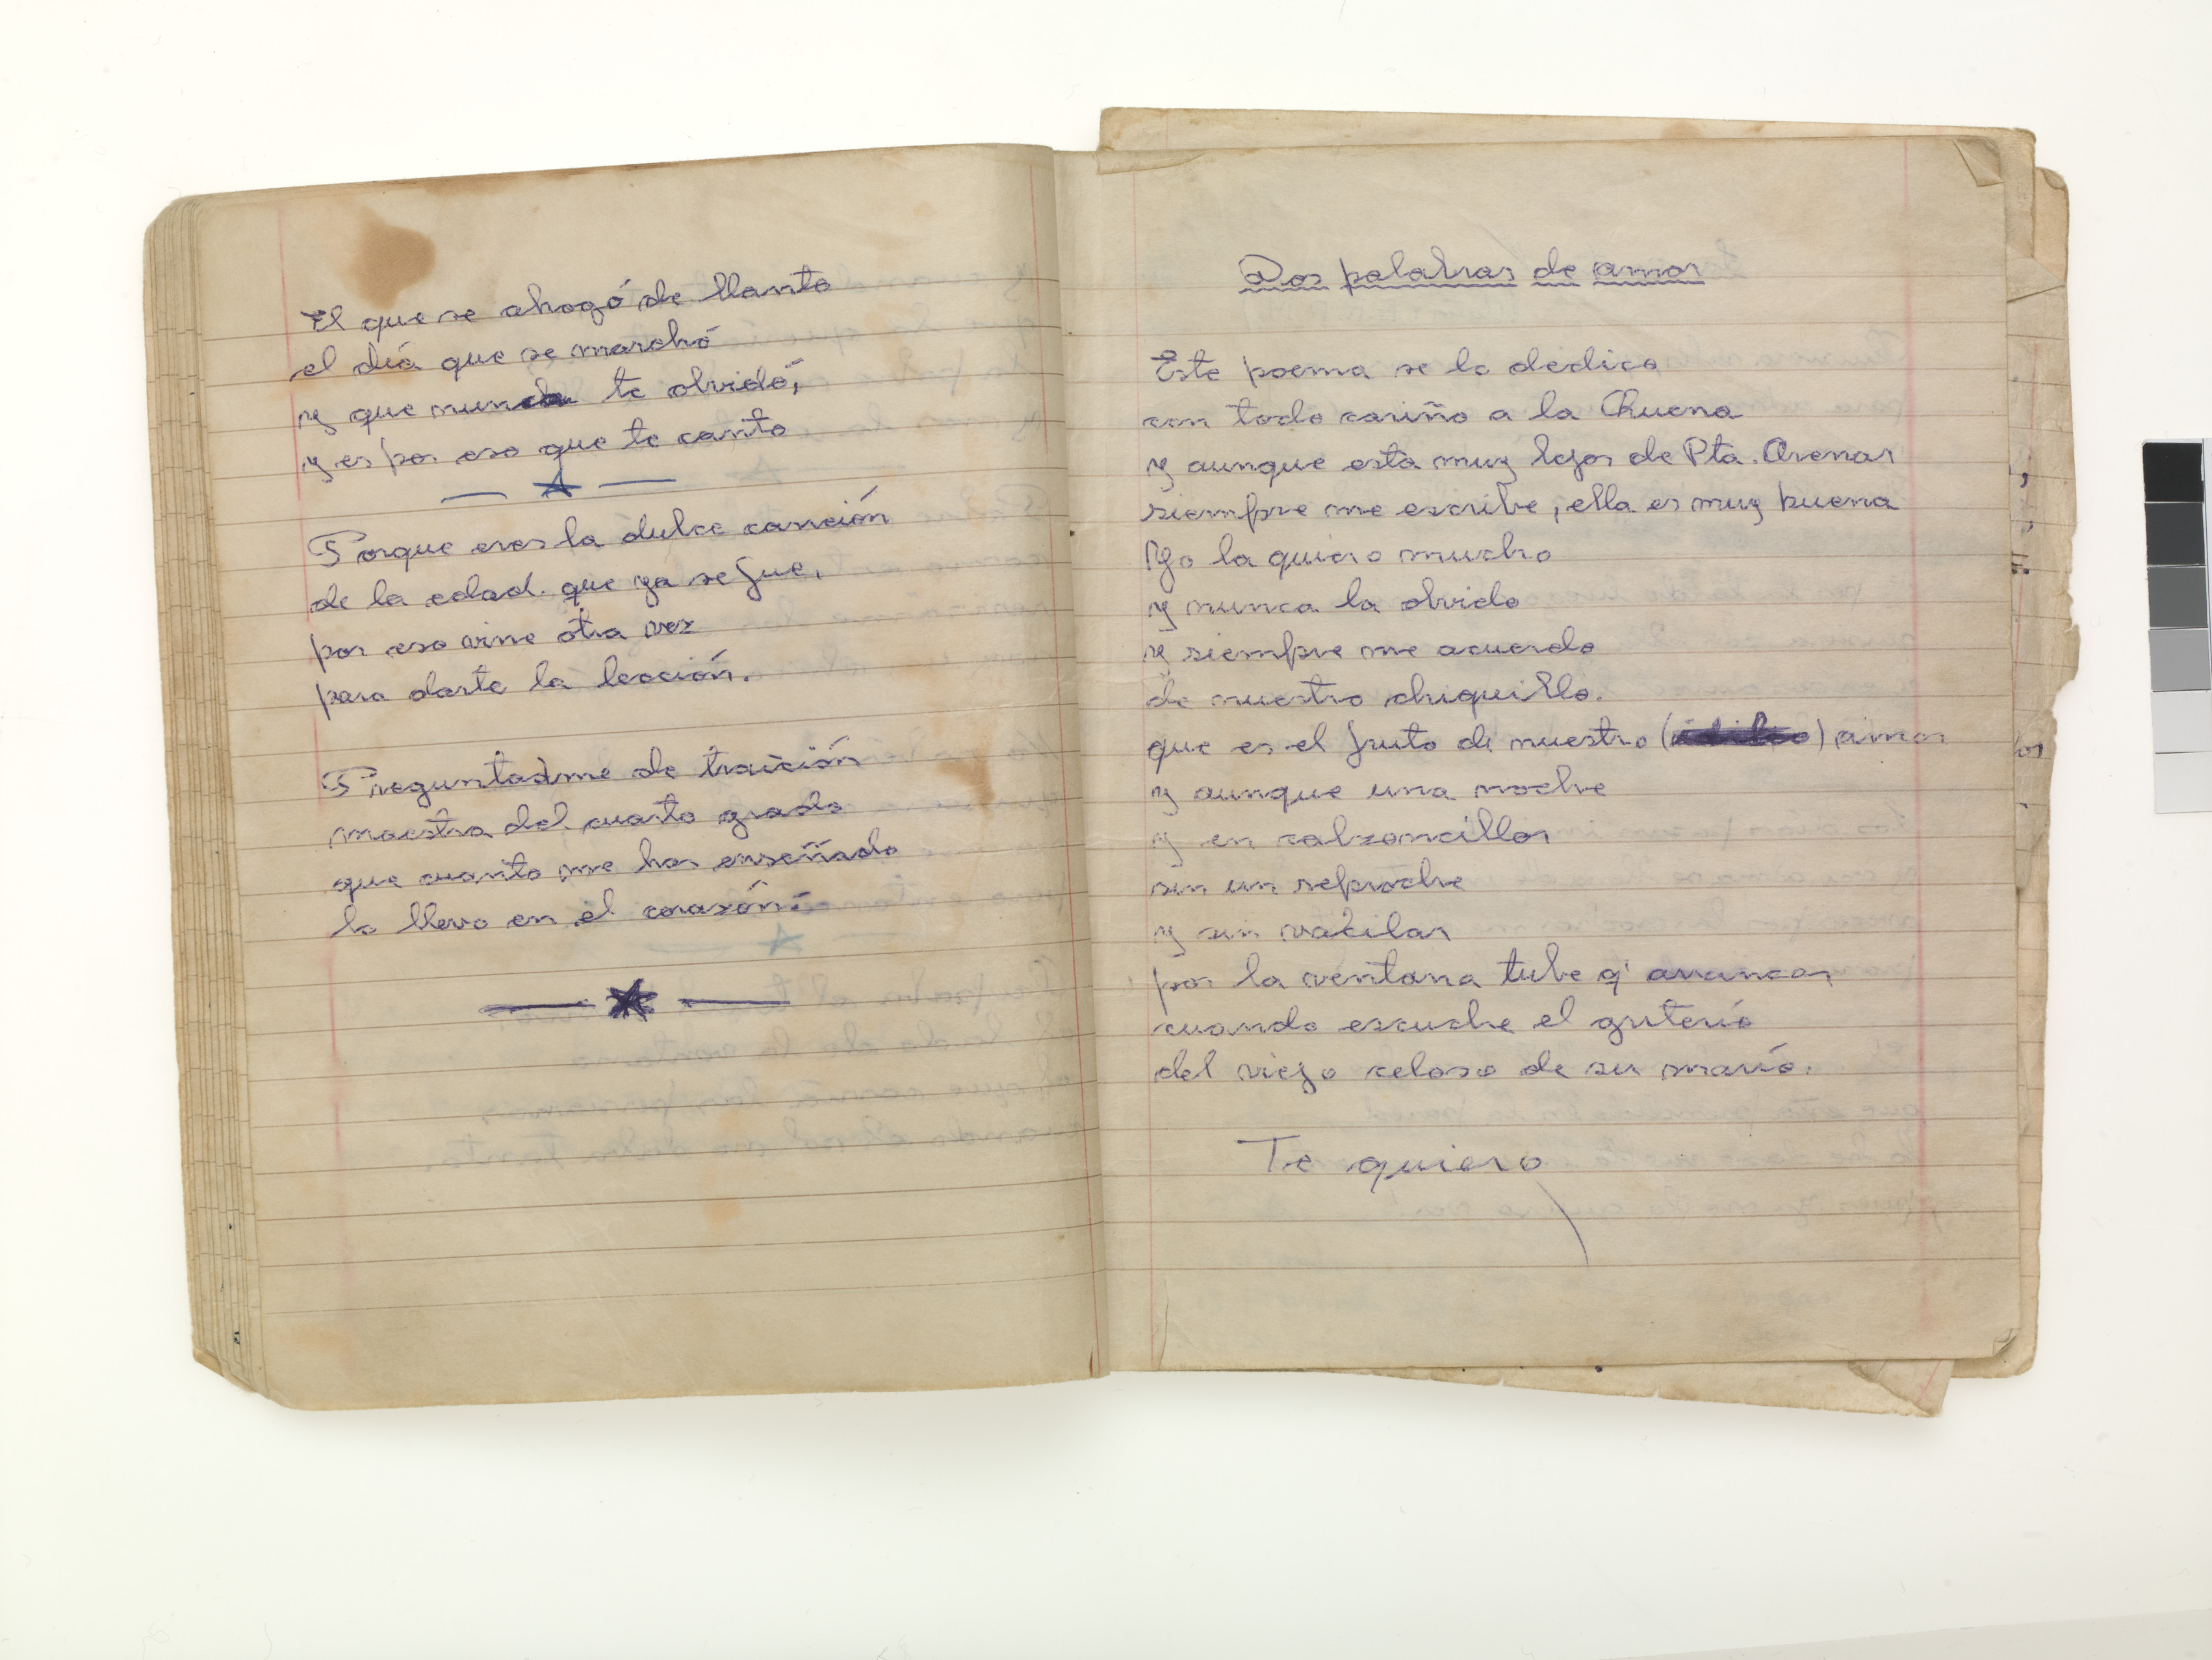 El que se ahogó de llanto
el día que se marchó
y que nunca te olvidó,
y es por eso que te canto
Porque eres la dulce canción
de la edad. que ya se fue,
por eso vine otra vez
para darte la lección.
Preguntadme de traición
maestra del cuarto grado
que cuanto me has enseñado
lo llevo en el corazón.
Dos palabras de amor
Este poema se lo dedico
con todo cariño a la Chuena
y aunque esta muy lejos de Pta. Arenas
siempre me escribe, ella es muy buena
Yo la quiero mucho
y nunca la olvido
y siempre me acuerdo
de nuestro chiquillo.
que es el fruto de nuestro ( ) amor
y aunque una noche
y en calzoncillos
sin un reproche
y sin vacilar
por la ventana tube q' arrancar
cuando escuche el griterío
del viejo celoso de su marío.
Te quiero